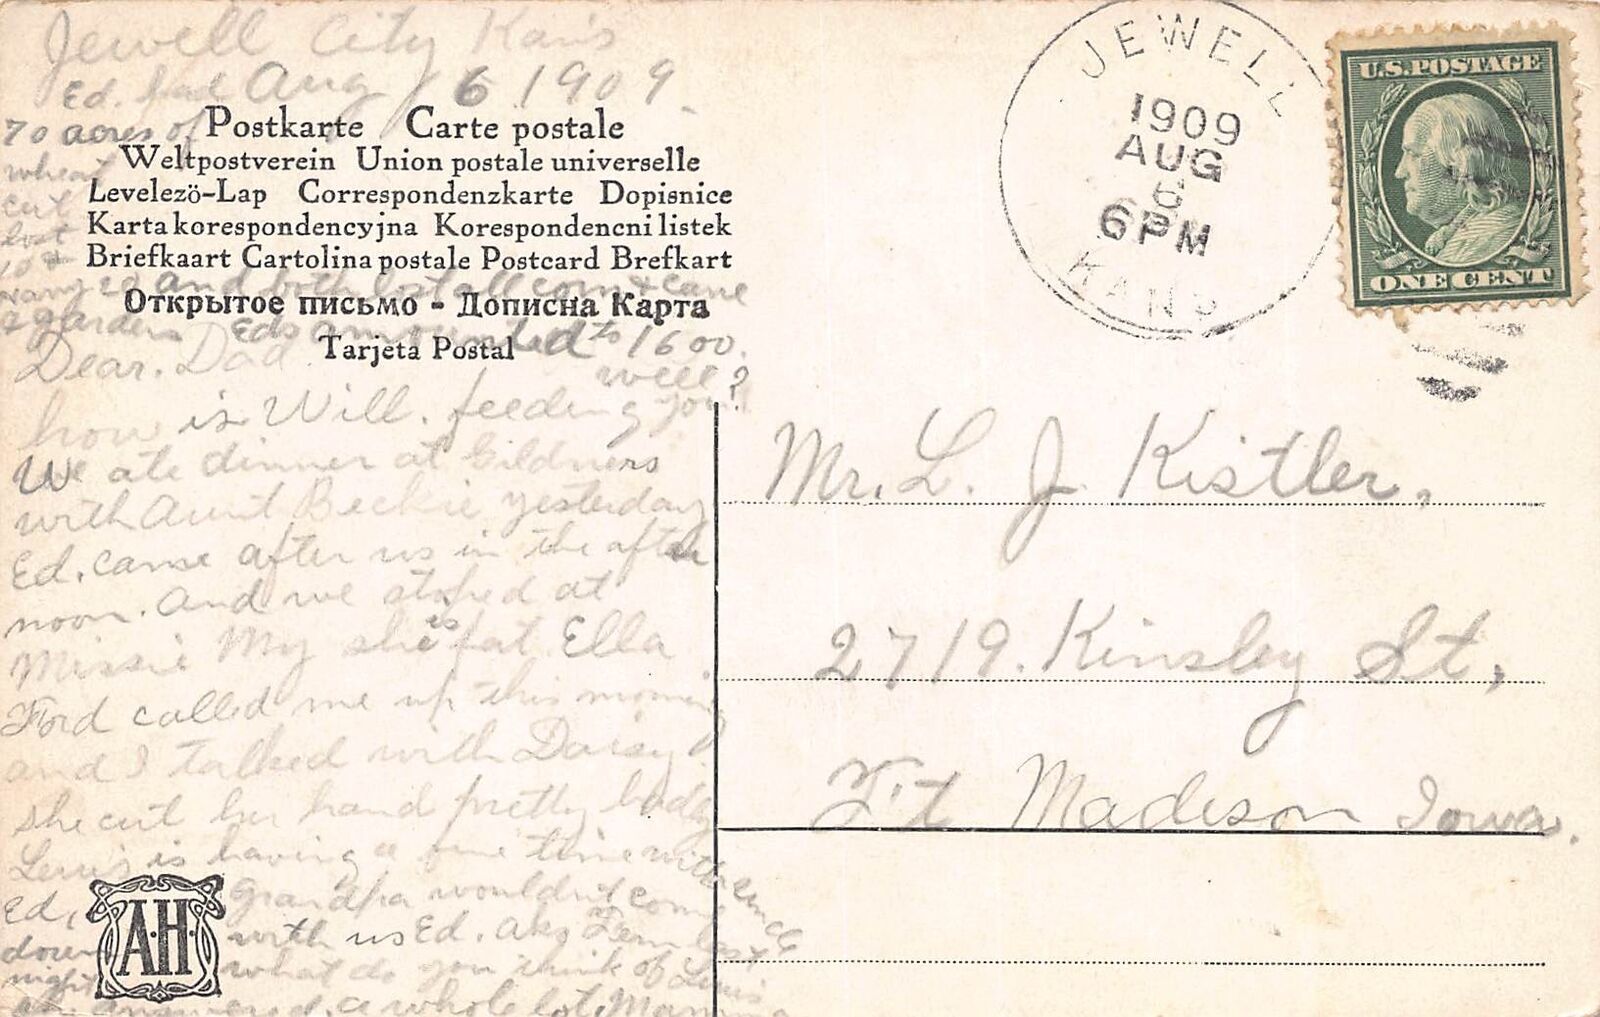 Jewell City Kans
Aug 6 1909.
Ed. had
70 acres of
wheat
cut
lost
10 a
and both lost all corn & cane
& gardens Eds amounted to 1600.
Postkarte Carte postale
Weltpostverein Union postale universelle
Levelezö-Lap Correspondenzkarte Dopisnice
Karta korespondencyjna Korespondencni listek
Briefkaart Cartolina postale Postcard Brefkart
Открытое письмо - Дописна Карта
Tarjeta Postal
Dear. Dad.
how is Will. feeding you well?
We ate dinner at Gildners
with Aunt Beckie yesterday
Ed. came after us in the after
noon. And we stoped at
Missie My she is fat Ella
Ford called me up this morning
and I talked with Daisy
she cut her hand pretty badly
Lewis is having a fine time with uncle
Ed, Grandpa wouldn't come
down with us Ed. aks Fern last
night what do you think of Lewis
answered, a whole lot, Mamma
A·H
JEWELL
1909
AUG
6
6 PM
KANS
U.S. POSTAGE
ONE CENT
Mr. L. J. Kistler,
2719. Kinsley St,
Ft Madison Iowa.